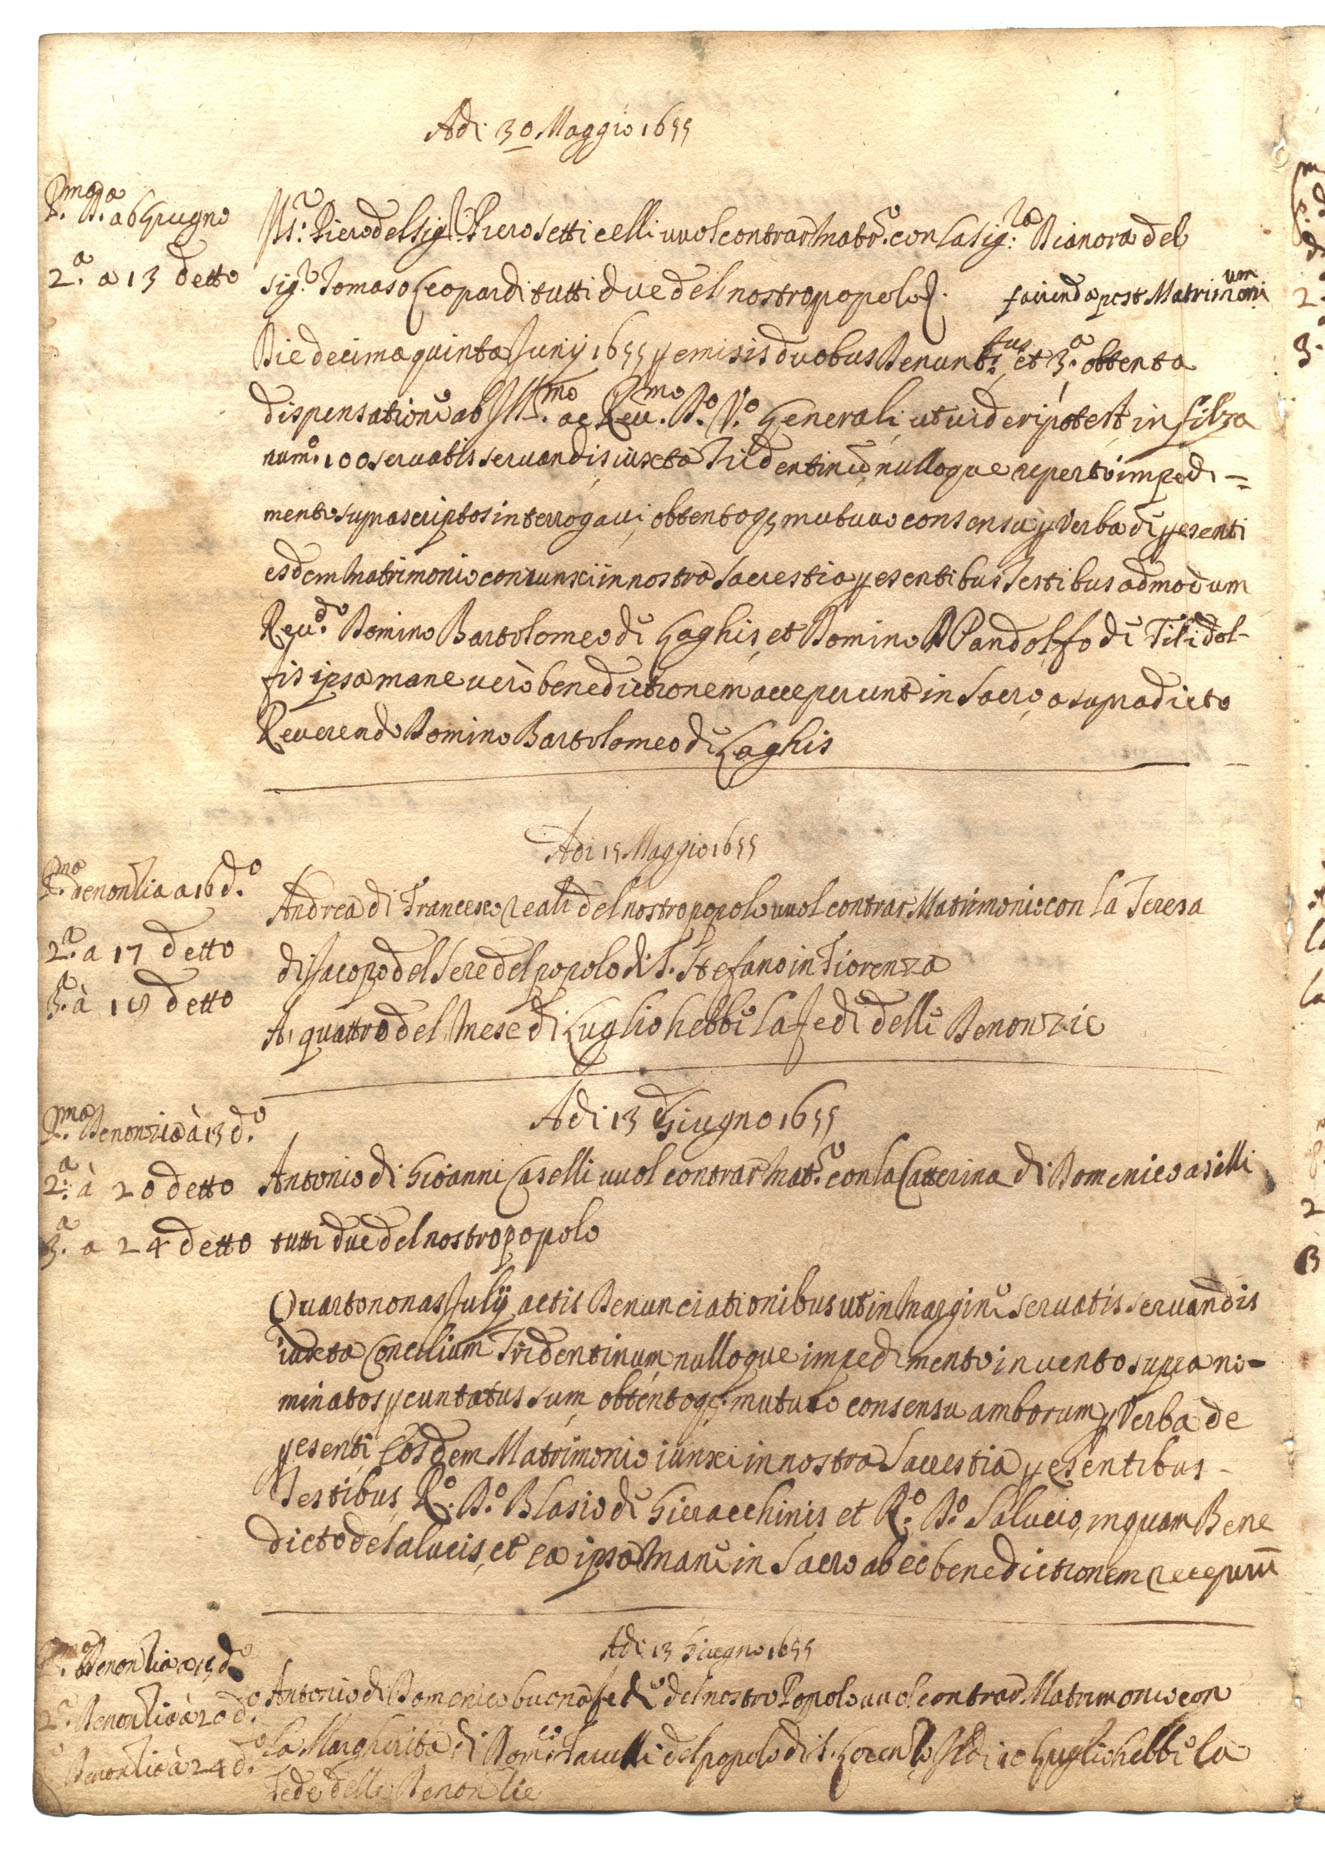 Adi 30 Maggio 1655
P.ma D.a a 6 Giugno
2.a a 13 detto
Ms: Piero del Sig.r Piero setticelli vuol contrar Matr.o con la Sig.ra Dianora del
sig.r Tomaso Leopardi tutti due del nostro popolo
facienda post Matrimonium
Die decima quinta Junij 1655 p emisis duobus Denunt.bus et 3.a obtenta
dispensatione ab Ill.mo ac Reu.mo D.o V.o Generali ut videri potest in filza
num.o 100 servatis servandis iuxta Tridentinū nulloque reperto impedi=
mento supra scriptos interrogavi, obtentoq3 mutuuo consensu p Verba di p esenti
esdem Matrimonio coniunxi in nostra Sacrestia p esentibus Testibus admodum
Reud.o Domino Bartolomeo di Laghis, et Domino Pandolfo di Tilidol-
fis ipsa mane verò benedictionem acceperunt in Sacro, a supradicto
Reverendo Domino Bartolomeo di Laghis
Adi 15 Maggio 1655
P.ma denontia a 16 d.o
2.a a 17 detto
3.a à 18 detto
Andrea di Francesco Reali del nostro popolo vuol contrar Matrimonio con la Teresa
di Jacopo del Sere del popolo di S. Stefano in Fiorenza
A quattro del Mese di Luglio hebbi la fedi delli Denonzie
Adi 13 Giugno 1655
P.ma Denonzia à 13 d.o
2.a à 20 detto
3.a a 24 detto
Antonio di Gioanni Caselli vuol contrar Mat.o con la Catterina di Domenico aselli
tutti due del nostro popolo
Quarto nonas Julij actis Denunciationibus ut in Margine servatis servandis
iuxta Concilium Tridentinum nulloque impedimento invento supra no-
minatos p cuntatus sum obtentoq3 mutuo consensu amborum p Verba de
p esenti Eosdem Matrimonio iunxi in nostra Sacrestia p esentibus
Testibus R.o D.o Blasio di Gieracchinis et R.o D.o Salucio, inquam Bene
dicto de Salucis, et ea ipsa Mane in Sacro ab eo benedictionem receperunt
Adi 13 Giugno 1655
P.ma Denontia a 13 d.o
2.a Denontia à 20 d.o
Denontia à 24 d.o
Antonio di Domenico buona fede del nostro Popolo vuol contrar Matrimonio con
la Margherita di Dom.co del popolo di S. Lorenzo Adi 10 Luglio hebbi la
fede delle Denontie